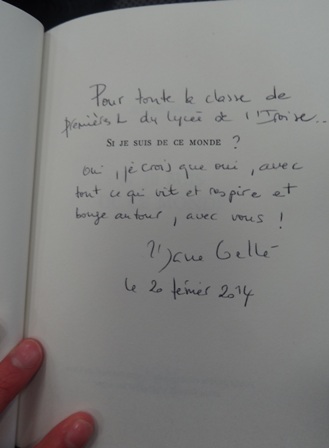 Pour toute la classe de
premières L du lycée de l'Iroise...
SI JE SUIS DE CE MONDE ?
oui, je crois que oui, avec
tout ce qui vit et respire et
bouge autour, avec vous !
Gellé
le 20 février 2014